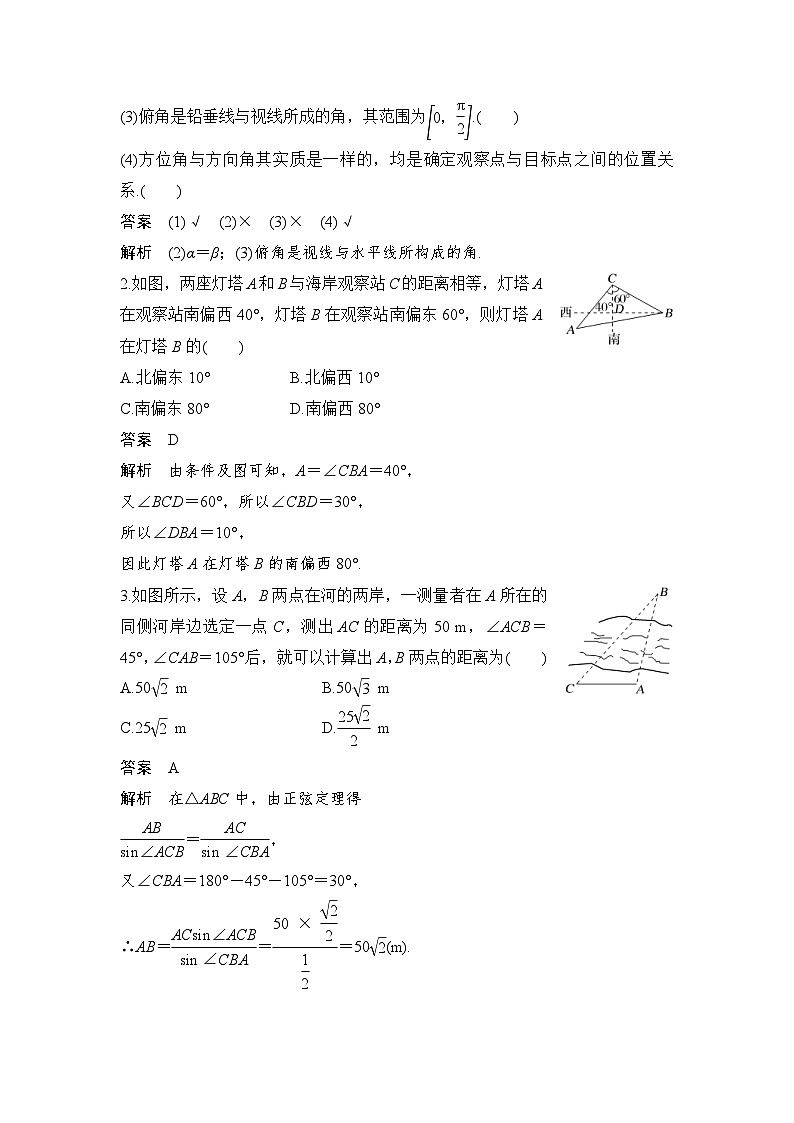 (3)俯角是铅垂线与视线所成的角，其范围为[0，π/2].(　　)
(4)方位角与方向角其实质是一样的，均是确定观察点与目标点之间的位置关
系.(　　)
答案　(1)√　(2)×　(3)×　(4)√
解析　(2)α＝β；(3)俯角是视线与水平线所构成的角.
2.如图，两座灯塔A和B与海岸观察站C的距离相等，灯塔A
在观察站南偏西40°，灯塔B在观察站南偏东60°，则灯塔A
在灯塔B的(　　)
C
60°
西
40°
D
B
A
南
A.北偏东10°　　B.北偏西10°
C.南偏东80°　　D.南偏西80°
答案　D
解析　由条件及图可知，A＝∠CBA＝40°，
又∠BCD＝60°，所以∠CBD＝30°，
所以∠DBA＝10°，
因此灯塔A在灯塔B的南偏西80°.
3.如图所示，设A，B两点在河的两岸，一测量者在A所在的
同侧河岸边选定一点C，测出AC的距离为50 m，∠ACB＝
45°，∠CAB＝105°后，就可以计算出A，B两点的距离为(　　)
B
C
A
A.50√2 m　　B.50√3 m
C.25√2 m　　D.25√2/2 m
答案　A
解析　在△ABC中，由正弦定理得
AB/sin∠ACB＝AC/sin ∠CBA，
又∠CBA＝180°－45°－105°＝30°，
∴AB＝ACsin∠ACB/sin ∠CBA＝(50 × √2/2)/(1/2)＝50√2(m).